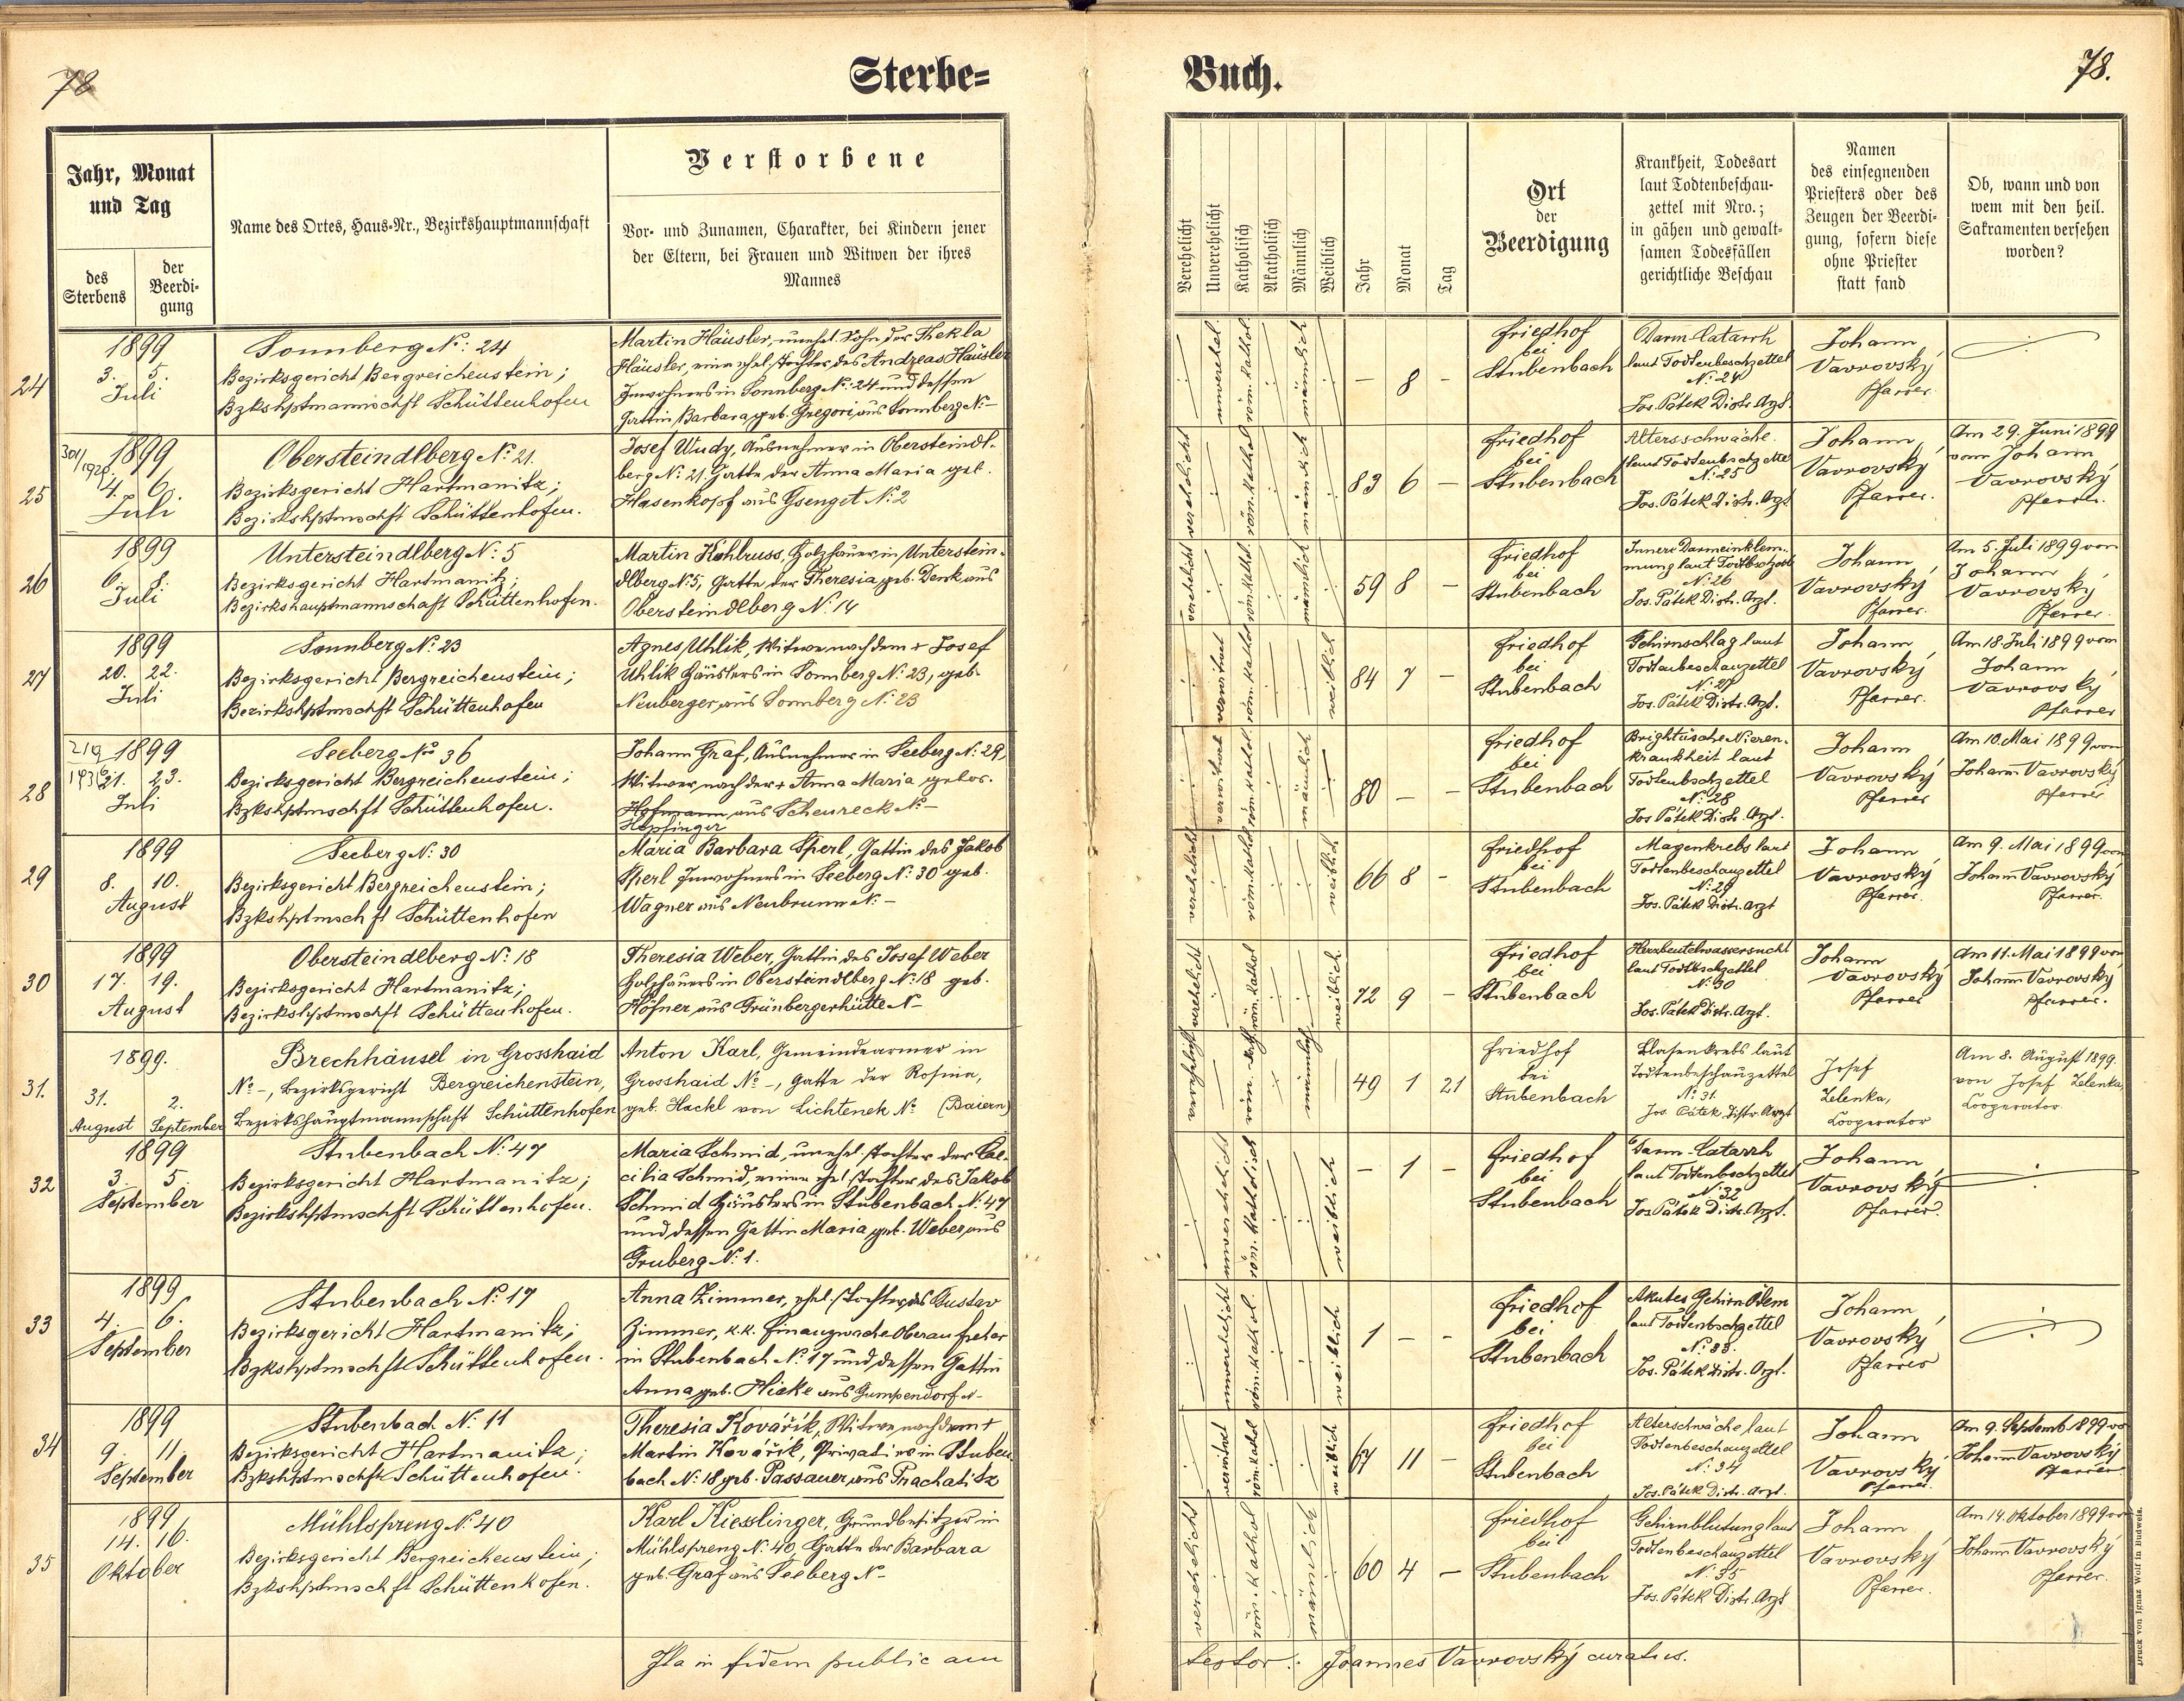 78
Sterbe=
Buch.
78.
Jahr, Monat
und Tag
des
Sterbens
der
Beerdi-
gung
Name des Ortes, Haus-Nr., Bezirkshauptmannschaft
Verstorbene
Vor- und Zunamen, Charakter, bei Kindern jener
der Eltern, bei Frauen und Witwen der ihres
Mannes
Verehelicht
Unverehelicht
Katholisch
Akatholisch
Männlich
Weiblich
Jahr
Monat
Tag
Ort
der
Beerdigung
Krankheit, Todesart
laut Todtenbeschau-
zettel mit Nro.;
in gähen und gewalt-
samen Todesfällen
gerichtliche Beschau
Namen
des einsegnenden
Priesters oder des
Zeugen der Beerdi-
gung, sofern diese
ohne Priester
statt fand
Ob, wann und von
wem mit den heil.
Sakramenten versehen
worden?
24
1899
3. 5.
Juli
Sonnberg No: 24
Bezirksgericht Bergreichenstein;
Bzkshptmannschft Schüttenhofen
Martin Häusler, unehel. Sohn der Thekla
Häusler, einer ehel. Tochter des Andreas Häusler
Inwohners in Sonnberg No: 24 und dessen
Gattin Barbara, geb. Gregori, aus Sonnberg No -
unverehel.
röm. kathol.
männlich
- 8 -
Friedhof
bei
Stubenbach
Darm Catarrh
laut Todtenbeschzettel
No: 24
Jos. Pátek Distr. Arzt.
Johann
Vavrovský
Pfarrer.
25
301/1928
1899
4. 6.
Juli
Obersteindlberg No. 21.
Bezirksgericht Hartmanitz;
Bezirkshptmschft Schüttenhofen.
Josef Wudy, Ausnehmer in Obersteindl-
berg No: 21, Gatte der Anna Maria geb.
Hasenkopf aus Gsenget No: 2
verehelicht
röm. kathol
männlich
83 6 -
Friedhof
bei
Stubenbach
Altersschwäche
laut Todtenbschzettel
No: 25
Jos. Pátek Distr. Arzt.
Johann
Vavrovský
Pfarrer.
Am 29. Juni 1899
vom Johann
Vavrovský
Pfarrer.
26
1899
6. 8.
Juli
Untersteindlberg No: 5
Bezirksgericht Hartmanitz;
Bezirkshauptmannschaft Schüttenhofen.
Martin Kohlruss, Holzhauer in Unterstein-
dlberg No: 5, Gatte der Theresia, geb. Denk aus
Obersteindlberg No. 14
verehelicht
röm. kathl.
männlich
59 8 -
Friedhof
bei
Stubenbach
Innere Darmeinklem-
mung laut
No: 26
Jos. Pátek Distr. Arzt.
Johann
Vavrovský
Pfarrer.
Am 5. Juli 1899 von
Johann
Vavrovský
Pfarrer.
27
1899
20. 22.
Juli
Sonnberg No: 23
Bezirksgericht Bergreichenstein;
Bezirkshptmschft Schüttenhofen
Agnes Uhlik, Witwe nach dem + Josef
Uhlik Häuslers in Sonnberg No: 23, geb.
Neuberger, aus Sonnberg No: 23
verwitwet
röm. kathol
weiblich
84 7 -
Friedhof
bei
Stubenbach
Gehirnschlag laut
Todtenbeschauzettel
No: 27
Jos. Pátek Distr. Arzt.
Johann
Vavrovský
Pfarrer.
Am 18 Juli 1899 vom
Johann
Vavrovský
Pfarrer
28
219
1936
1899
21. 23.
Juli
Seeberg No 36
Bezirksgericht Bergreichenstein;
Bzkshptmschft Schüttenhofen.
Johann Graf, Ausnehmer in Seeberg No: 29,
Witwer nach der + Anna Maria gebor.
Hofmann aus Scheureck No -
Hopfinger
verwitwet
röm. kathol.
männlich
80 - -
Friedhof
bei
Stubenbach
Brightüsche Nieren-
krankheit laut
Todtenbschzettel
No: 28
Jos Pátek Distr. Arzt.
Johann
Vavrovský
Pfarrer
Am 10. Mai 1899 vom
Johann Vavrovský
Pfarrer
29
1899
8. 10.
August
Seeberg No: 30
Bezirksgericht Bergreichenstein;
Bzkshptmschft Schüttenhofen
Maria Barbara Sperl, Gattin des Jakob
Sperl Inwohners in Seeberg No: 30 geb.
Wagner aus Neubrunn No: -
verehelicht
röm. kathol
weiblich
66 8 -
Friedhof
bei
Stubenbach
Magenkrebs laut
Todtenbeschauzettel
No: 29
Jos. Pátek Distr. Arzt
Johann
Vavrovský
Pfarrer.
Am 9. Mai 1899 von
Johann Vavrovský
Pfarrer.
30
1899
17. 19.
August
Obersteindlberg No: 18
Bezirksgericht Hartmanitz;
Bezirkshptmschft Schüttenhofen.
Theresia Weber, Gattin des Josef Weber
Holzhauers in Obersteindlberg No: 18 geb.
Höfner aus Grünbergerhütte No -
verehelicht
röm. kathol
weiblich.
72 9 -
Friedhof
bei
Stubenbach
Herzbeutelwassersucht
laut Todtbschzettel
No: 30
Jos. Pátek Distr. Arzt.
Johann
Vavrovský
Pfarrer
Am 11. Mai 1899 von
Johann Vavrovský
Pfarrer.
31.
1899.
31. 2.
August September
Brechhäusel in Grosshaid
No -, Bezirksgericht Bergreichenstein,
Bezirkshauptmannschaft Schüttenhofen
Anton Karl, Gemeindearmer in
Grosshaid No -, Gatte der Rosina,
geb. Hackl von Lichtenek No (Baiern)
verehelicht
röm. kath.
männlich
49 1 21
Friedhof
bei
Stubenbach
Blasenkrebs laut
Todtenbeschauzettel
No: 31.
Jos. Pátek, Distr. Arzt
Josef
Zelenka,
Cooperator
Am 8. August 1899.
von Josef Zelenka,
Cooperator
32
1899
3. 5.
September
Stubenbach No: 47
Bezirksgericht Hartmanitz;
Bezirkshptmschft Schüttenhofen.
Maria Schmid, unehel. Tochter der Cae-
cilia Schmid, einer ehel. Tochter des Jakob
Schmid Häuslers in Stubenbach No: 47
und dessen Gattin Maria, geb. Weber, aus
Gruberg No: 1.
unverehelicht
röm. katholisch
weiblich
- 1 -
Friedhof
bei
Stubenbach
Darm-Catarrh
laut Todtenbschzettel
No: 32
Jos Pátek Distr. Arzt.
Johann
Vavrovský
Pfarrer.
33
1899
4. 6.
September
Stubenbach No: 17
Bezirksgericht Hartmanitz;
Bzkshptmschft Schüttenhofen.
Anna Zimmer, ehel. Tochter des Gustav
Zimmer, k.k. Finanzwache Oberaufseher
in Stubenbach No: 17 und dessen Gattin
Anna geb. Hicke aus Gumpendorf No -
unverehelicht
röm. kathol.
weiblich
1 - -
Friedhof
bei
Stubenbach
Akutes Gehirn Ödem
laut Todtenbschzettel
No: 33.
Jos. Pátek Distr. Arzt.
Johann
Vavrovský
Pfarrer
34
1899
9. 11.
September
Stubenbach No: 11
Bezirksgericht Hartmanitz;
Bzkshptmschft Schüttenhofen.
Theresia Kovářík, Witwe nach dem +
Martin Kovářík, Privatiers in Stuben
bach No: 18 geb. Passauer, aus Prachatitz
verwitwet
röm. kathol
weiblich
67 11 -
Friedhof
bei
Stubenbach
Alterschwäche laut
Todtenbeschauzettel
No: 34
Jos. Pátek Distr. Arzt.
Johann
Vavrovský
Pfarrer
Am 9. Septemb 1899 vo
Johann Vavrovský
Pfarrer
35
1899
14. 16.
Oktober
Mühlspreng No. 40
Bezirksgericht Bergreichenstein;
Bzkshptmschft Schüttenhofen.
Karl Kiesslinger, Grundbesitzer in
Mühlspreng No: 40, Gatte der Barbara
geb. Graf aus Seeberg No -
verehelicht
röm. kathol
männlich
60 4 -
Friedhof
bei
Stubenbach
Gehirnblutung laut
Todtenbeschauzettel
No: 35
Jos. Pátek Distr. Arzt
Johann
Vavrovský
Pfarrer.
Am 14. Oktober 1899 vo
Johann Vavrovský
Pfarrer.
Ita in fidem public am
testor: Joannes Vavrovský curatus.
Druck von Ignaz Wolf in Budweis.